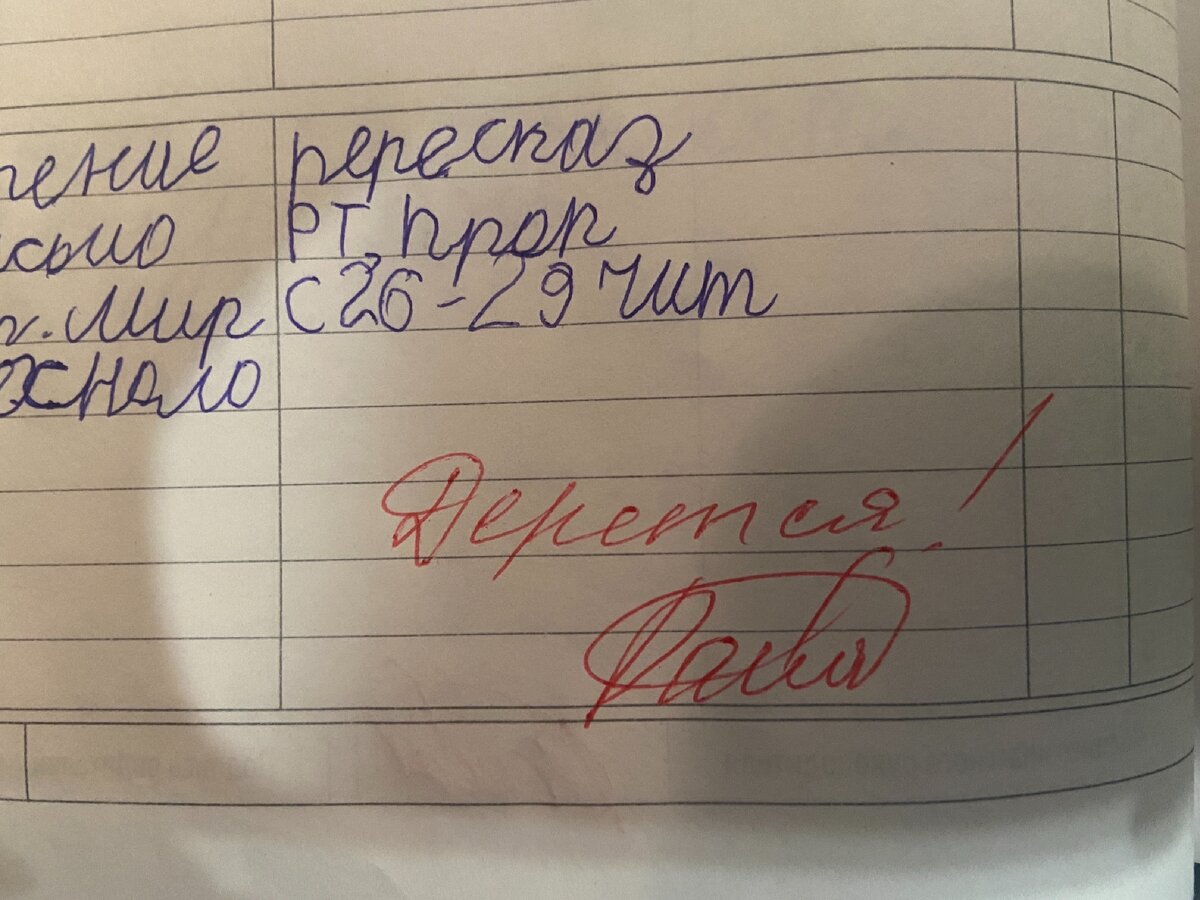 чтение пересказ
письмо РТ, проп
г. мир с 26-29 чит
Дерется!